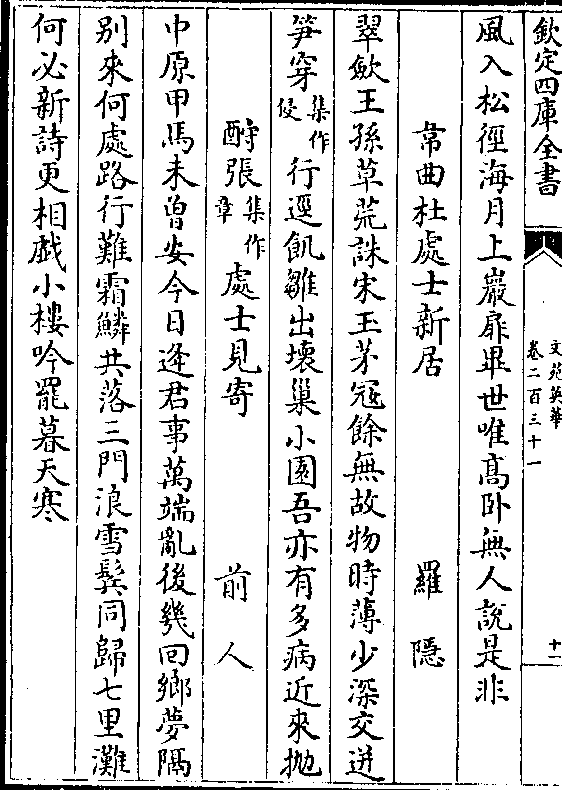 欽定四庫全書
文苑英華
卷二百三十一
十一
風入松徑海月上巖扉畢世唯髙卧無人說是非
韋曲杜處士新居 羅隱
翠歛王孫草荒誅宋玉茅冦餘無故物時薄少深交迸
笋穿集作侵行逕飢雛出壊巢小園吾亦有多病近來抛
酧張集作章處士見寄 前人
中原甲馬未曾安今日逢君事萬端亂後幾回鄉夢隔
别來何處路行難霜鱗共落三門浪雪鬂同歸七里灘
何必新詩更相戯小樓吟罷暮天寒